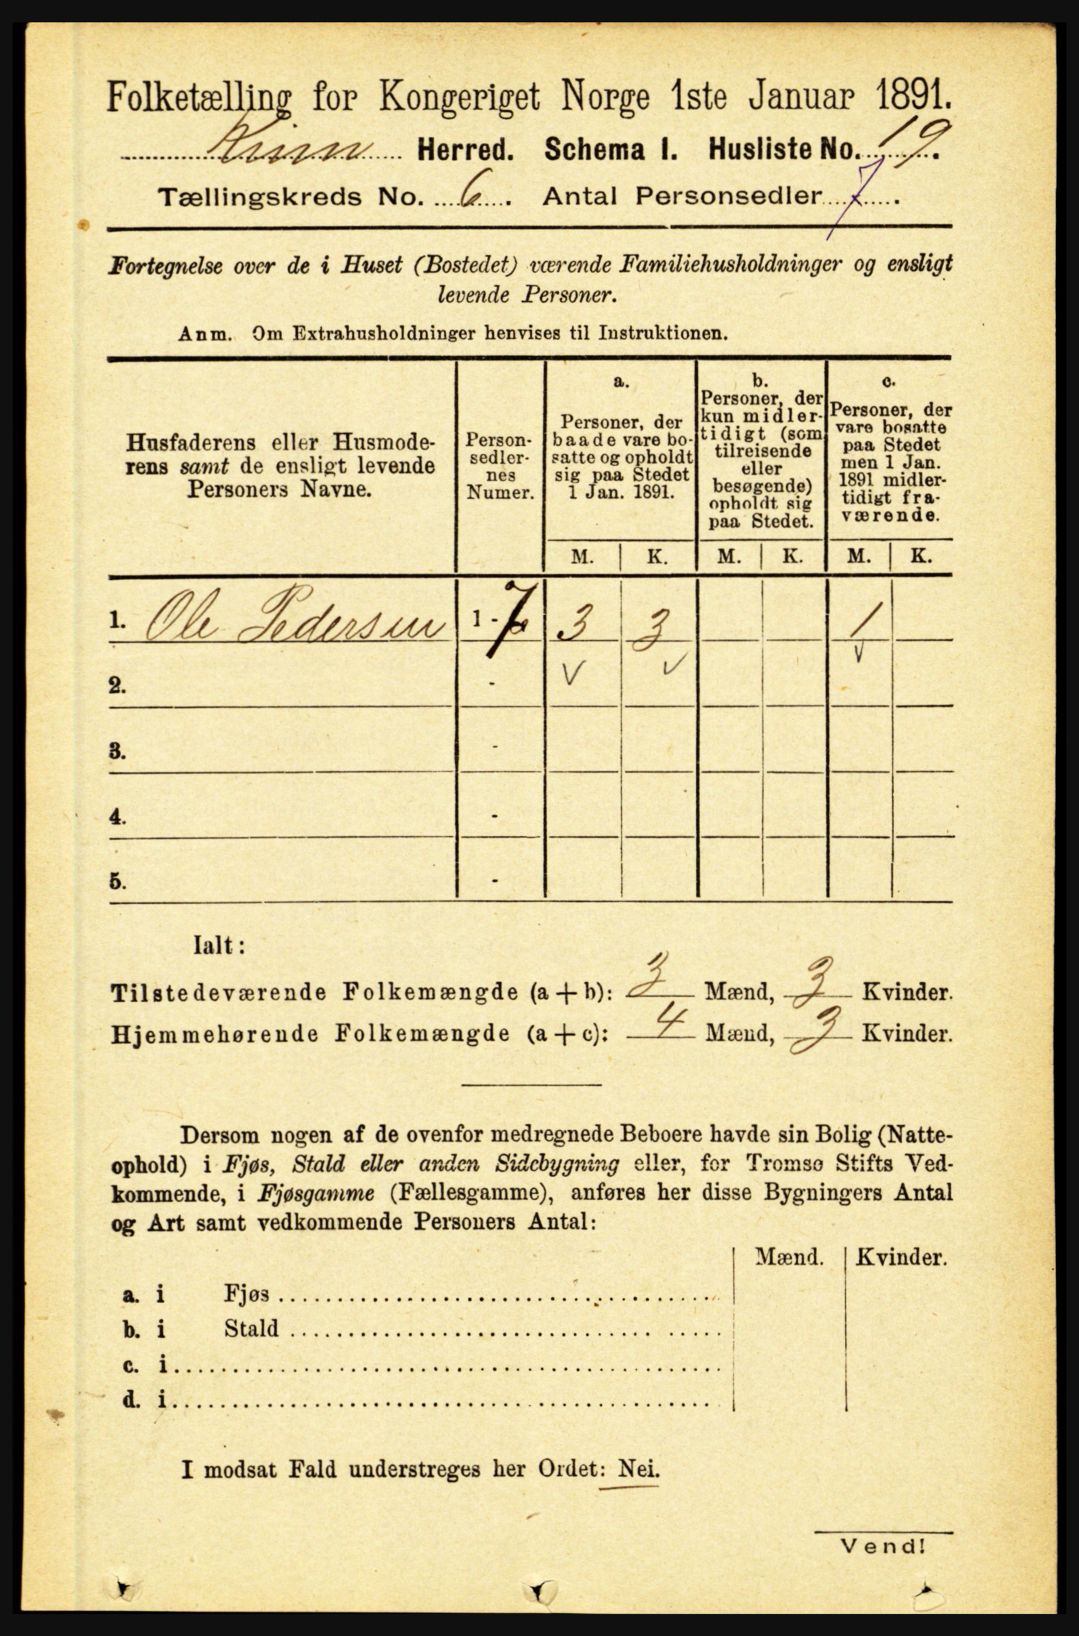 Folketælling for Kongeriget Norge 1ste Januar 1891.
Kinn Herred. Schema I. Husliste No. 19.
Tællingskreds No. 6. Antal Personsedler 7.
Fortegnelse over de i Huset (Bostedet) værende Familiehusholdninger og ensligt
levende Personer.
Anm. Om Extrahusholdninger henvises til Instruktionen.
Husfaderens eller Husmode-
rens samt de ensligt levende
Personers Navne.
Person-
sedler-
nes
Numer.
a.
Personer, der
baade vare bo-
satte og opholdt
sig paa Stedet
1 Jan. 1891.
b.
Personer, der
kun midler-
tidigt (som
tilreisende
eller
besøgende)
opholdt sig
paa Stedet.
c.
Personer, der
vare bosatte
paa Stedet
men 1 Jan.
1891 midler-
tidigt fra-
værende.
M. K. M. K. M. K.
1. Ole Pedersen 1 - 7 3 3 1
2. -
3. -
4. -
5. -
Ialt:
Tilstedeværende Folkemængde (a + b): 3 Mænd, 3 Kvinder.
Hjemmehørende Folkemængde (a + c): 4 Mænd, 3 Kvinder.
Dersom nogen af de ovenfor medregnede Beboere havde sin Bolig (Natte-
ophold) i Fjøs, Stald eller anden Sidebygning eller, for Tromsø Stifts Ved-
kommende, i Fjøsgamme (Fællesgamme), anføres her disse Bygningers Antal
og Art samt vedkommende Personers Antal:
Mænd. Kvinder.
a. i Fjøs
b. i Stald
c. i
d. i
I modsat Fald understreges her Ordet: Nei.
Vend!